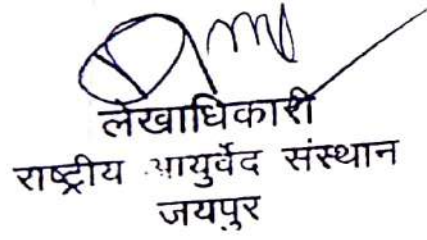 लेखाधिकारी
राष्ट्रीय आयुर्वेद संस्थान
जयपुर